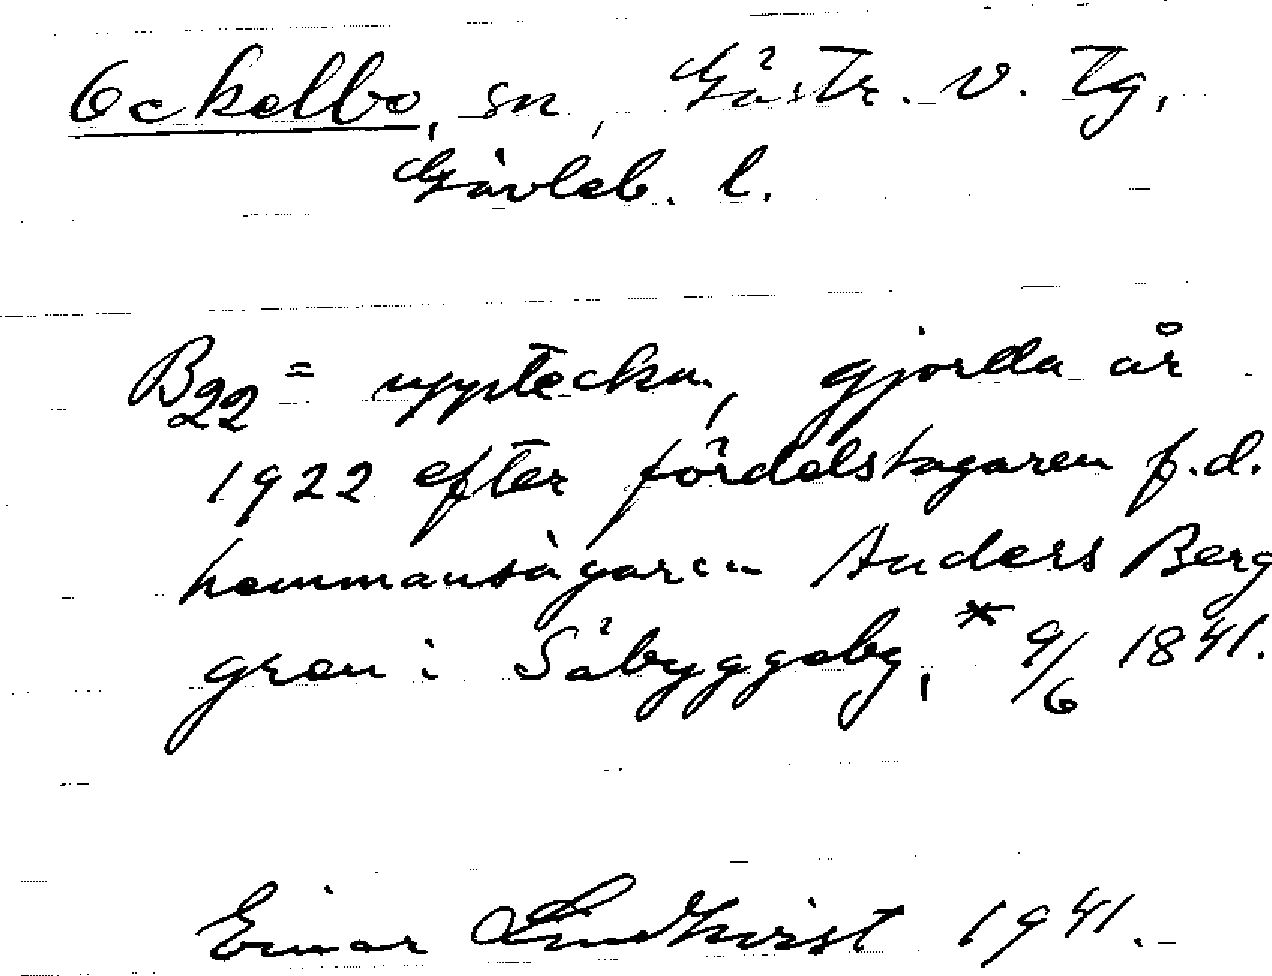 Ockelbo, sn, Gästr. v. Tg,
Gävleb. l.
B22 = uppteckn, gjorda år
1922 efter fördelstagaren f.d.
hemmansägaren Anders Berg
gren i Såbyggeby, * 9/6 1841.
Einar Lindkvist 1941.